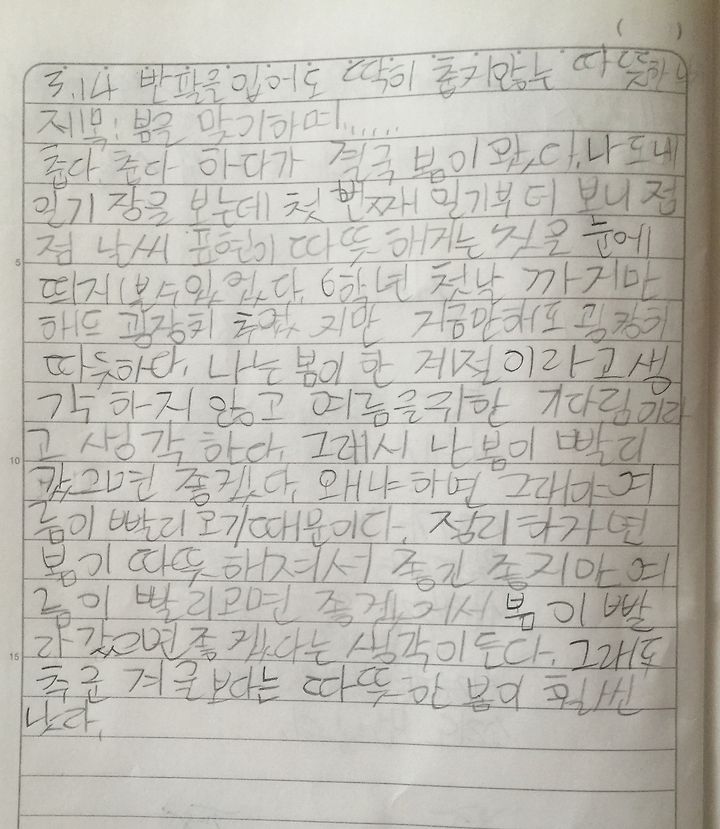 3.14 반팔을 입어도 딱히 춥지않는 따뜻한 날
제목: 봄을 맞기하며......
춥다 춥다 하다가 결국 봄이 왔다. 나도 내
일기 장을 보는데 첫 번째 일기부터 보니 점
점 날씨 표현이 따뜻 해지는 것을 눈에
띄지 볼수있었다. 6학년 첫날 까지만
해도 굉장히 추웠 지만 지금만해도 굉장히
따듯하다. 나는 봄이 한 계절이라고 생
각 하지 않고 여름을위한 기다림이라
고 생각 하다. 그래서 난 봄이 빨리
갔으면 좋겠다. 왜냐하면 그래야 여
름이 빨리 오기때문이다. 정리 하자면
봄이 따뜻 해져서 좋긴 좋지만 여
름이 빨리 오면 좋겠어서 봄 이 빨
리 갔으면 좋겠다는 생각이 든다. 그래도
추운 겨울 보다는 따뜻 한 봄이 훨씬
낫다.